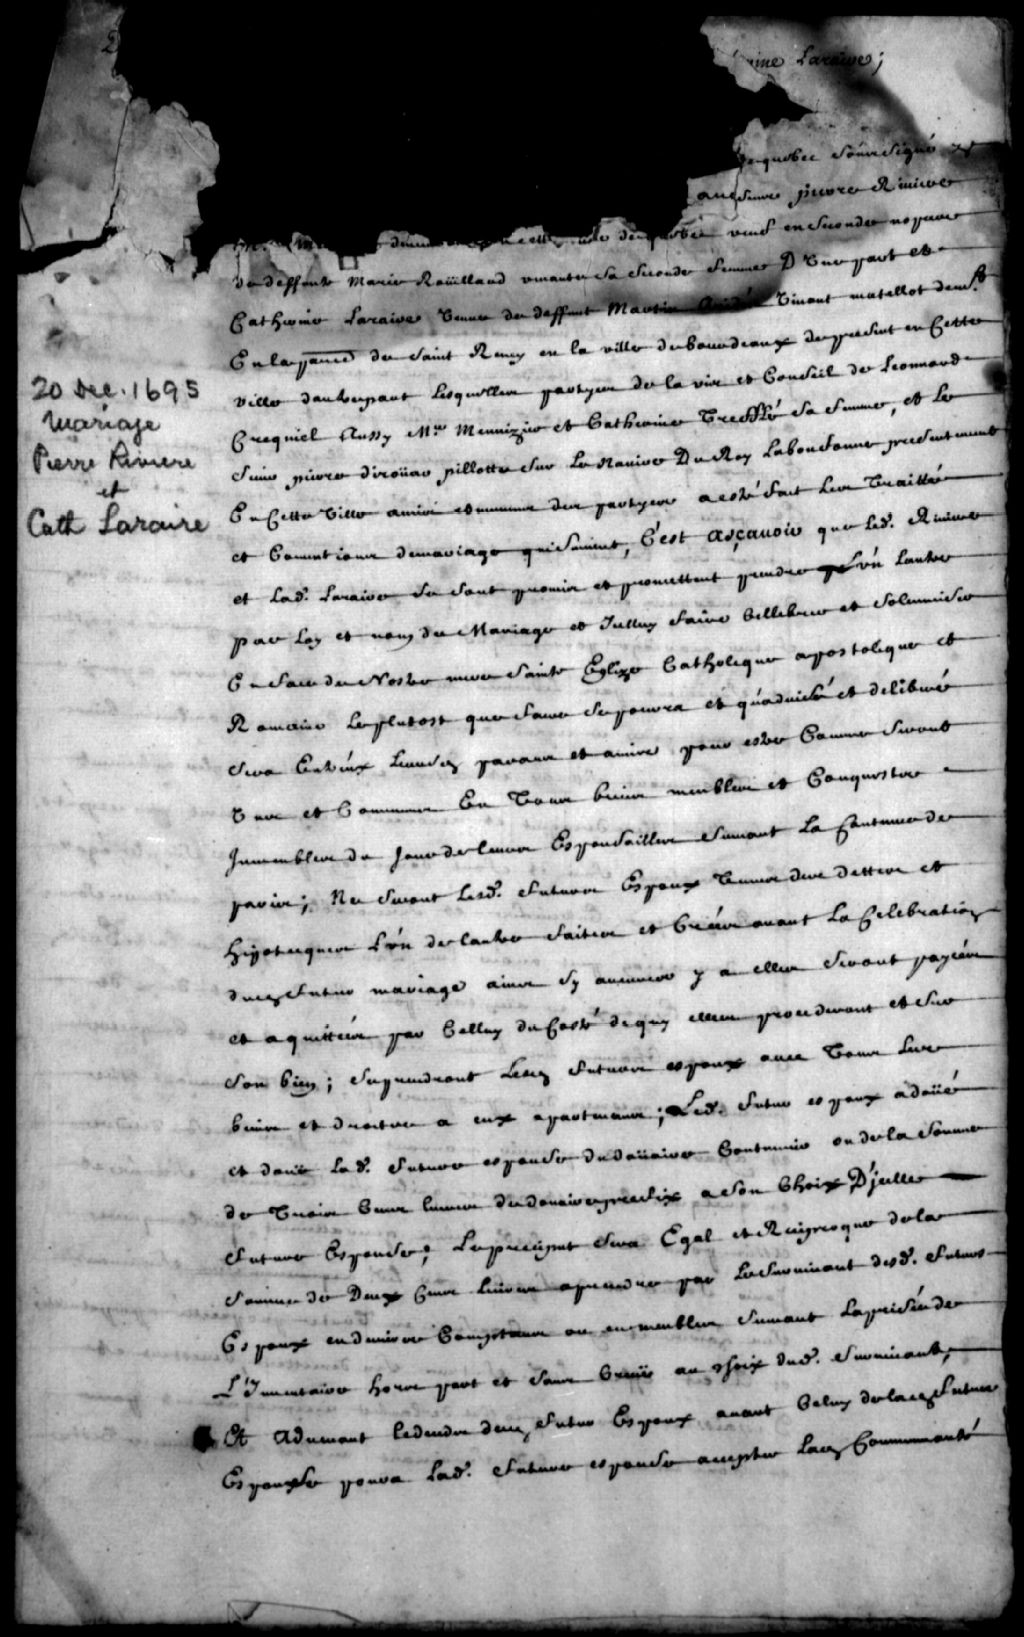 Laraire;
de quebec Soussigné
Pierre Riviere
veuf en Secondes nopces
de deffunte Marie Roüillaud vivante Sa Seconde femme D'Une part et
Catherine Laraire veuve de deffunt Martin vivant matellot demt.
En la paroisse de Saint Remy en la ville de bourdeaux de present en Cette
ville d'autre part Lesquelles partyes de lavis et Conseil de Leonnard
Crequiel Aussy Me. Menuizier et Catherine Trefflé Sa femme, et Le
Sieur pierre diroüar pillotte Sur Le Navire Du Roy Labondance presentement
En Cette Ville amis communs des partyes a esté fait Les Traitté
et Conventions de mariage qui Suivent, C'est asçavoir que Led. Riviere
et Lad. Laraire Se Sont promis et promettent prendre L'vn Lautre
par Loy et nom de Mariage et Jcelluy faire Cellebrer et Solemniser
En face de Nostre mere Sainte Eglize Catholique apostolique et
Romaine Le plutost que faire Se pourra et qu'advisé et deliberé
Sera Entr'eux Leursd parans et amis pour estre Comme Seront
Vns et Communs En Tous biens meubles et Conquestre
Jmmeubles du Jour de leurs Espousailles Suivant La Coutume de
paris; Ne Seront Lesd. futurs Espoux Tenus des dettes et
hypotecques L'vn de lautre faites et Créées avant La Celebration
dud futur mariage ains Sy aucunes y a elles Seront payées
et aquittées par Celluy du Costé de quy elles procederont et Sur
Son bien; Se prendront Lesd futurs espoux avec Tous Leurs
biens et droits a eux apartenans; Led. futur espoux a doüé
et doüe Lad. future espouse du doüaire Coutumier ou de la Somme
de Trois Cens livres de doüaire prefix a Son Choix D'jcelle
future Espouse; Le preciput Sera Egal et Reciproque de la
Somme de Deux Cens livres a prendre par Le Survivant desd. futurs
Espoux en deniers Comptans ou en meubles Suivant La prisée de
L'Inventaire hors part et Sans Creüe au choix dud. Survivant,
Et Advenant le deceds dud futur Espoux avant Celuy de lad future
Espouse poura Lad. future espouse accepter Lad Communauté
20 Dec. 1695
Mariage
Pierre Riviere
et
Cath Laraire